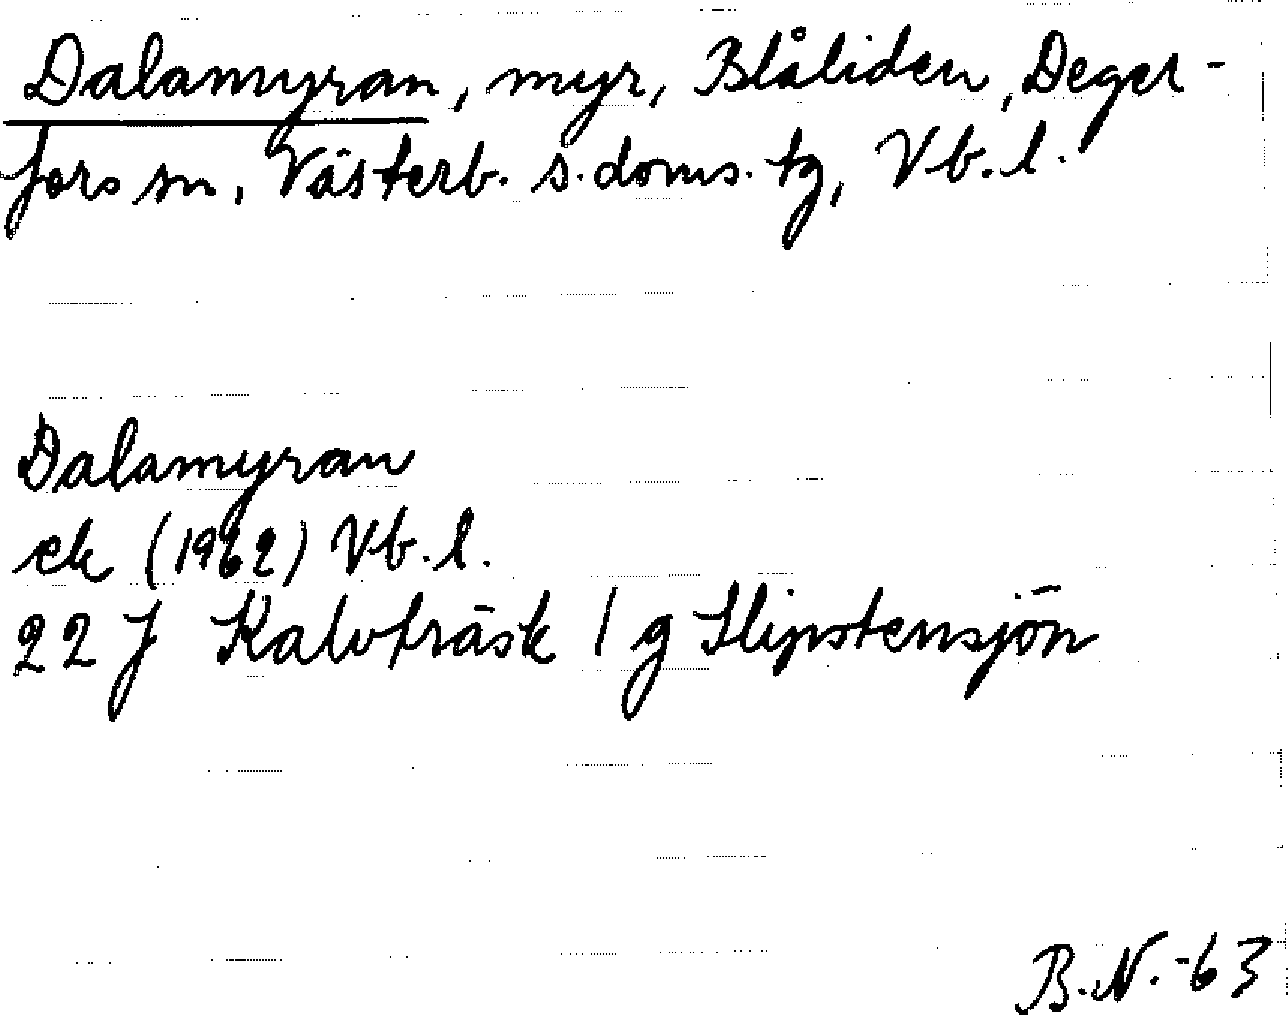 Dalamyran, myr, Blåliden, Deger-
fors sn, Västerb. s. doms. tg, Vb. l.
Dalamyran
ek (1962) Vb. l.
22 J Kalvträsk 1 g Slipstensjön
B.N.-63